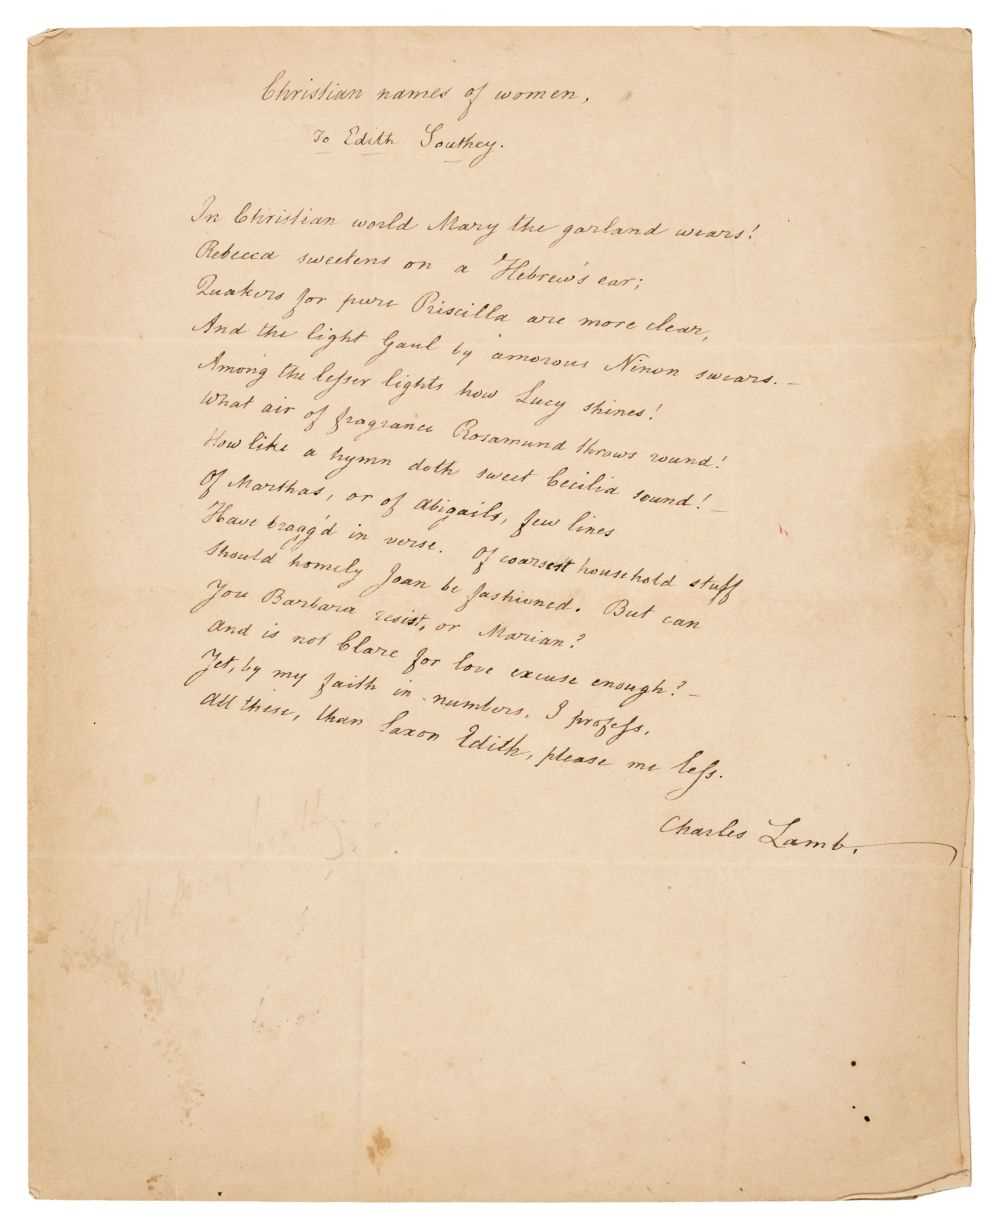 Christian names of women.
To Edith Southey.
In Christian world Mary the garland wears!
Rebecca sweetens on a Hebrew's ear;
Quakers for pure Priscilla are more clear,
And the light Gaul by amorous Ninon swears. –
Among the lesser lights how Lucy shines!
What air of fragrance Rosamund throws round!
How like a hymn doth sweet Cecilia sound! –
Of Marthas, or of Abigails, few lines
Have bragg'd in verse. Of coarsest household stuff
Should homely Joan be fashioned. But can
You Barbara resist, or Marian?
And is not Clare for love excuse enough? –
Yet, by my faith in numbers, I profess,
All these, than Saxon Edith, please me less.
Charles Lamb.